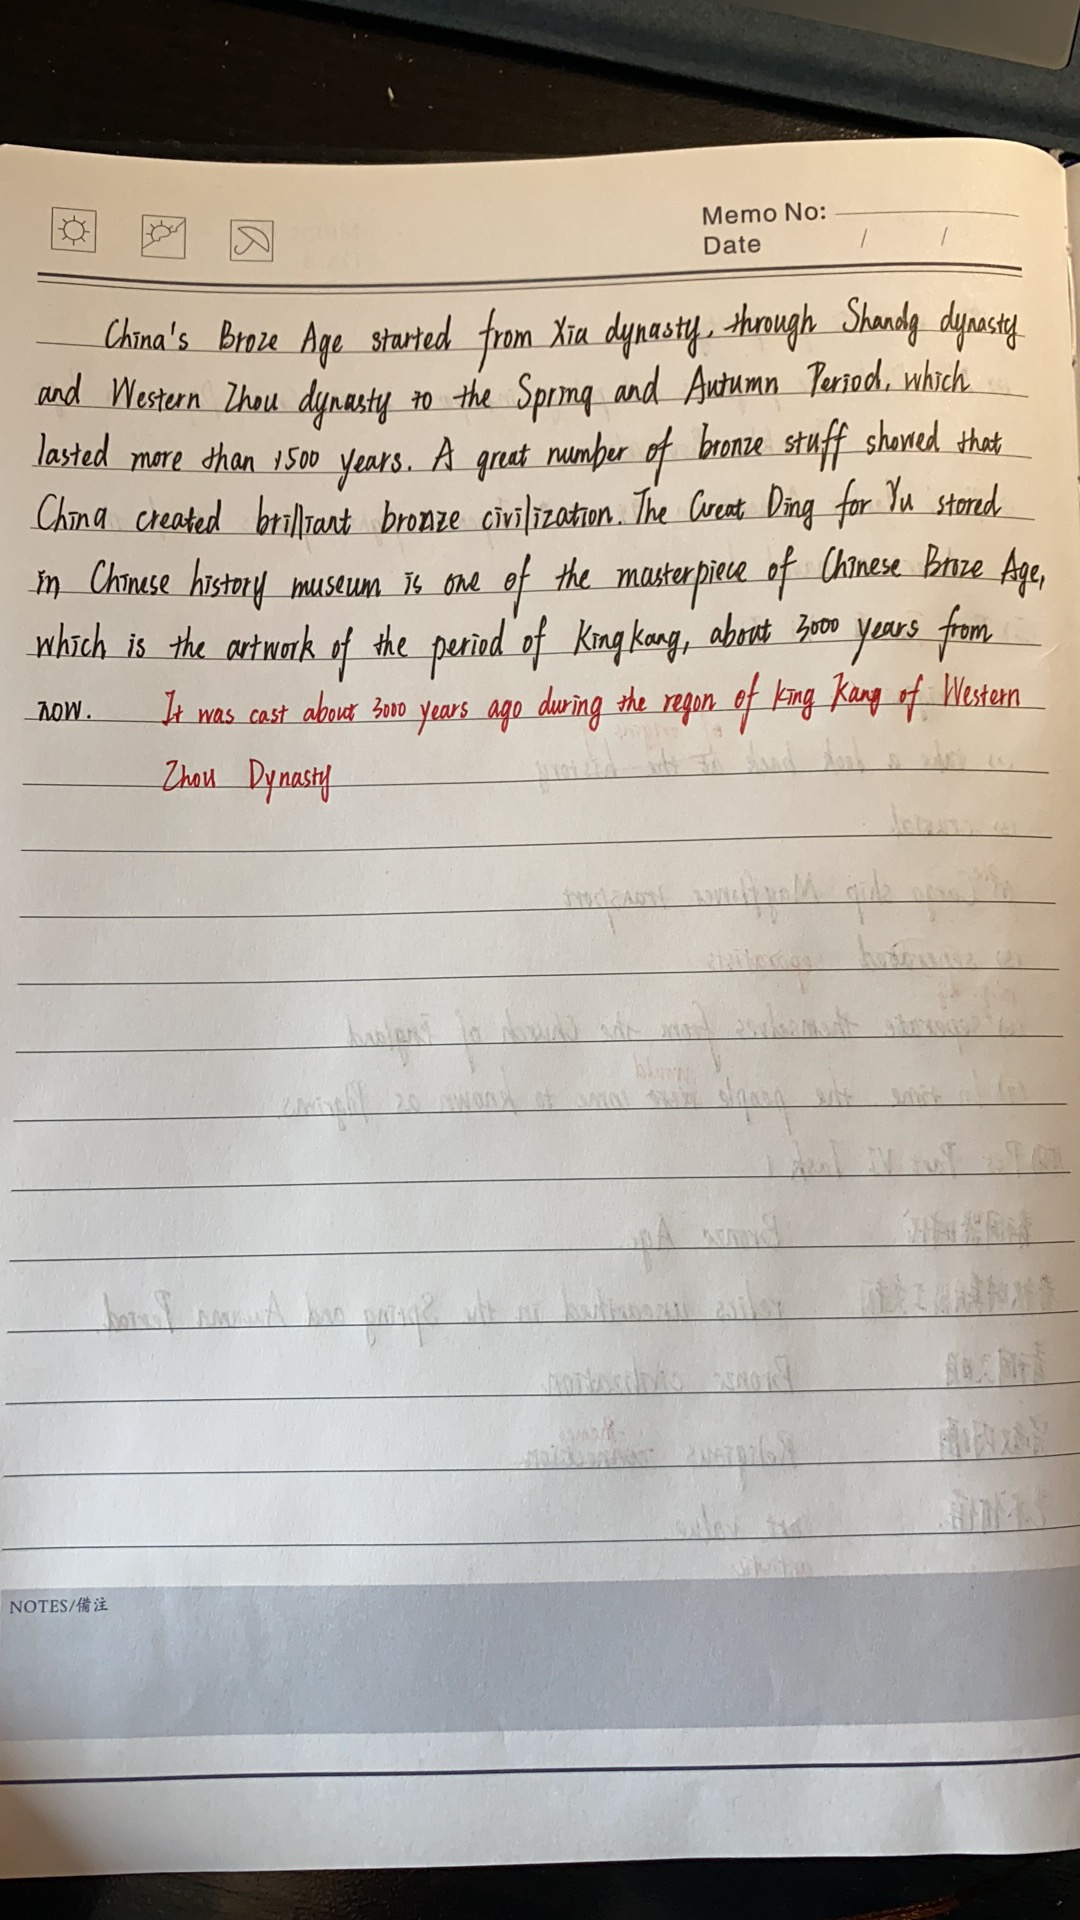 Memo No:
Date / /
China's Broze Age started from Xia dynasty, through Shandg dynasty
and Western Zhou dynasty to the Spring and Autumn Period, which
lasted more than 1500 years. A great number of bronze stuff showed that
China created brilliant bronze civilization. The Great Ding for Yu stored
in Chinese history museum is one of the masterpiece of Chinese Broze Age,
which is the artwork of the period of King kang, about 3000 years from
now. It was cast about 3000 years ago during the regon of King Kang of Western
Zhou Dynasty
NOTES/備注